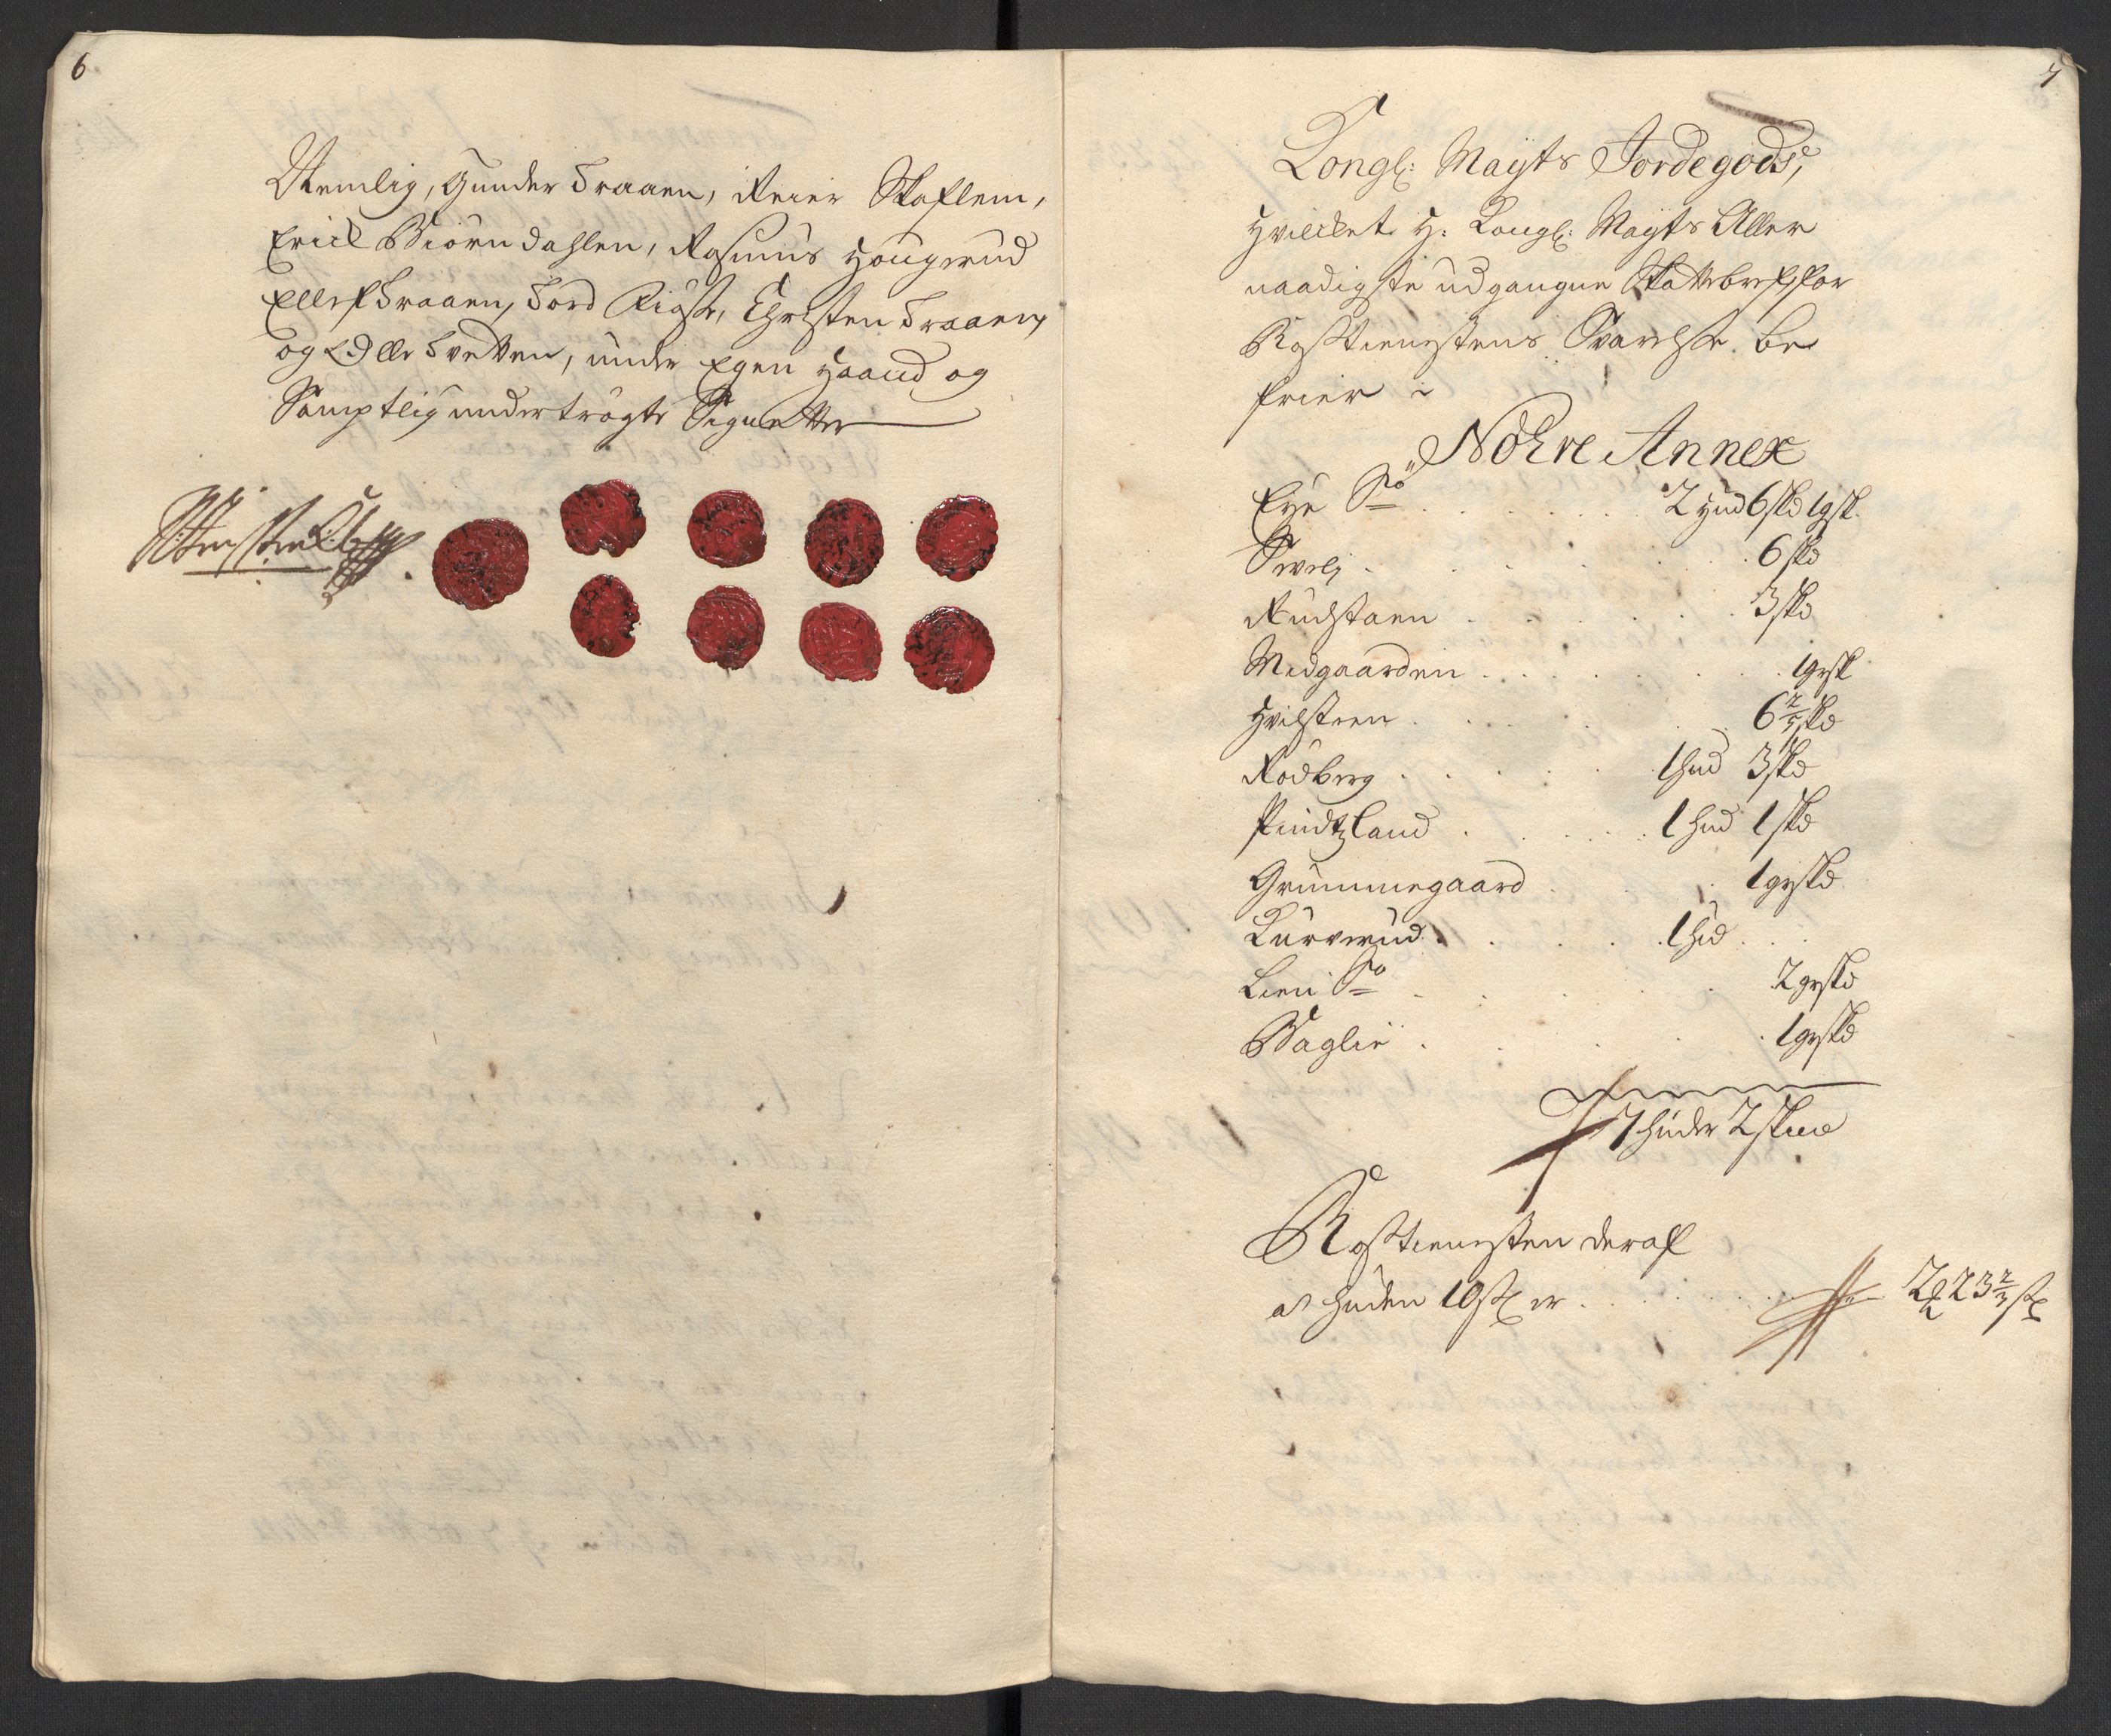 6
Nemlig, Gunder Traaen, Reier Skaflem,
Erich Biörndahlen, Rasmus Hougerud
Ellef Traaen, Tord Rigst, Christen Traaen,
og Colle Tvetten, under Egen Haand og
Samptlig undertrögte Signetter
7
Kongl: Mayts Jordegods,
Hvilcket H: Kongl: Mayts Aller
naadigste udgangne Skattebref for
Rosstienestens Svarelse be
frier i
Nöhre Annex
Eye Sö . . . 2 Hud 6 skd 1 gsk.
Sevely . . . 6 skd
Rudstaen . . . 3 skd
Medgaarden . . . 1 grsk
Hvilsteen . . . 6 2/3 skd
Rödberg . . . 1 hud 3 skd
Pindtzland . . . 1 hud 1 skd
Grummegaard . . . 1 grskd
Lurverud . . . 1 hud
Lien Sö . . . 2 grskd
Vaglie . . . 1 grskd
7 huder 2 skind
Rosstienesten deraf
af huden 10 sk er . . . 2 23 2/3 sk